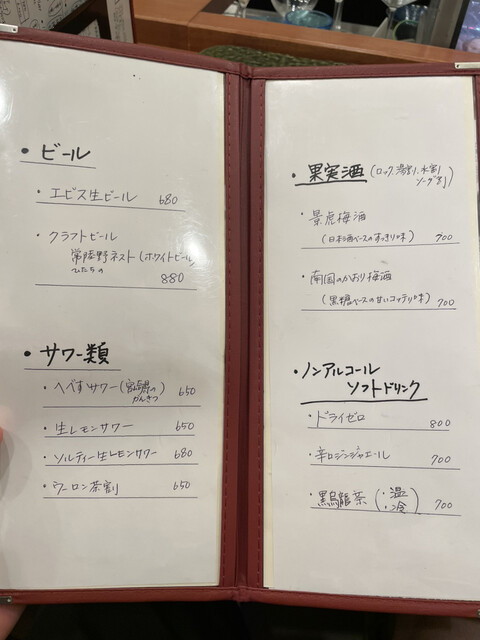 ・ビール
・エビス生ビール 680
・クラフトビール
常陸野ネスト(ホワイトビール)
ひたちの
880
・サワー類
・へべすサワー(宮崎の
かんきつ) 650
・生レモンサワー 650
・ソルティー生レモンサワー 680
・ウーロン茶割 650
・果実酒(ロック、湯割り、水割
ソーダ割)
・景虎梅酒
(日本酒ベースのすっきり味) 700
・南国のかおり梅酒
(黒糖ベースの甘いコッテリ味) 700
・ノンアルコール
ソフトドリンク
・ドライゼロ 800
・辛口ジンジャエール 700
・黒烏龍茶(・温
・冷) 700